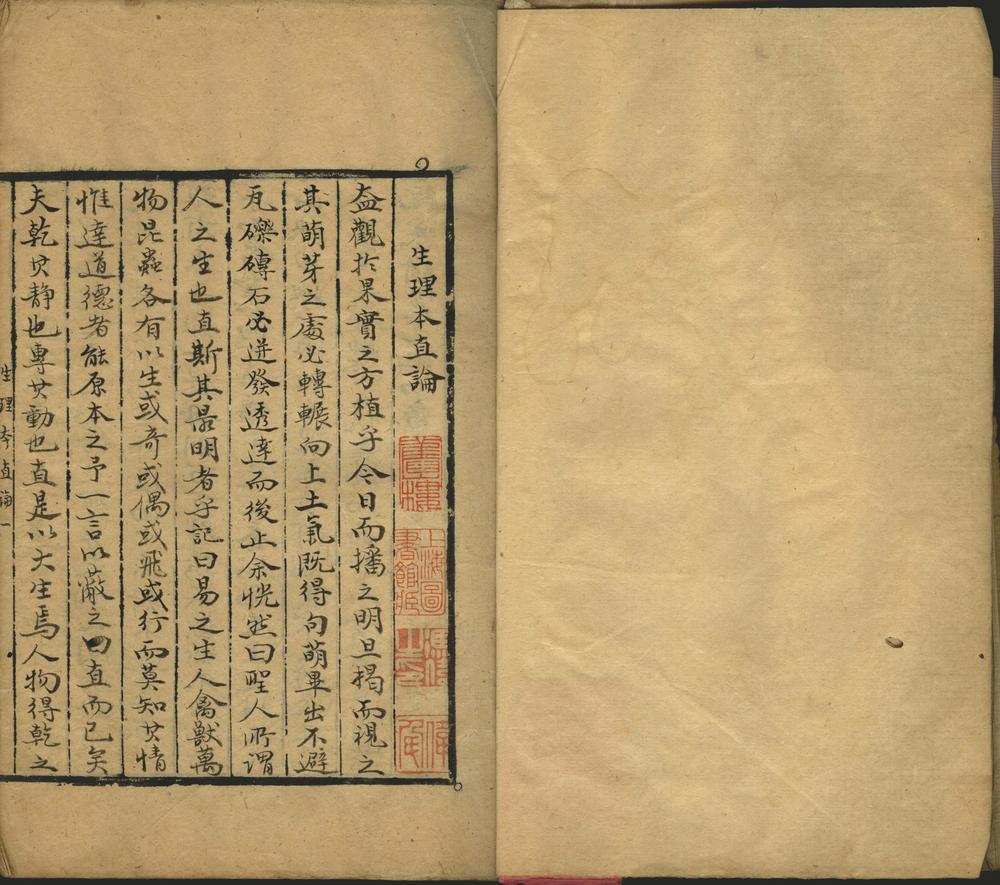 生理本直論
盍觀扵果實之方植乎今日而播之明旦揭而視之
其萌芽之處必轉輾向上土氣既得句萌畢出不避
瓦礫磚石必迸發透達而後止余恍然曰聖人所謂
人之生也直斯其最明者乎記曰易之生人禽獸萬
物昆蟲各有以生或奇或偶或飛或行而莫知其情
惟達道德者能原本之予一言以蔽之曰直而已矣
夫乾其静也專其動也直是以大生焉人物得乾之
生理本直論一
上海圖書館藏